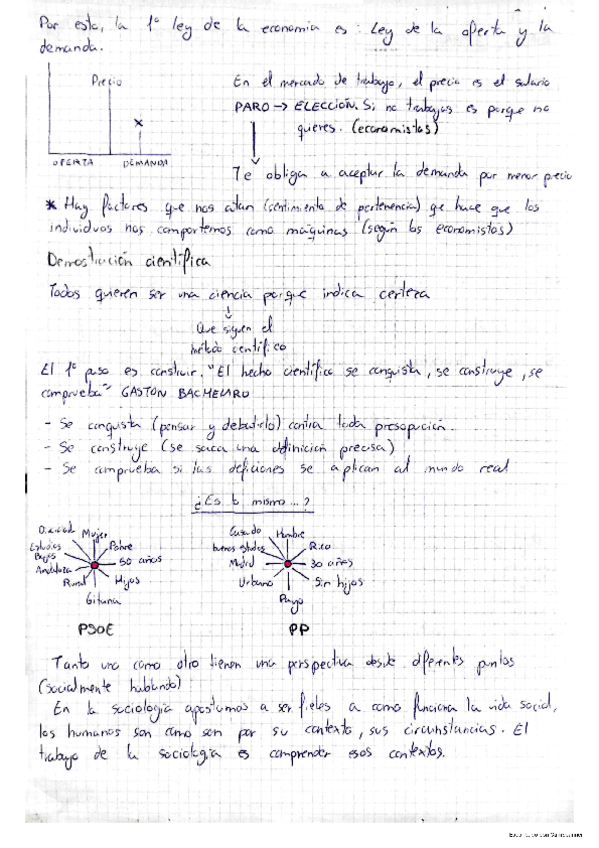 Por esto, la 1º ley de la economía es: Ley de la oferta y la
demanda.
Precio
OFERTA DEMANDA
En el mercado de trabajo, el precio es el salario
PARO → ELECCIÓN. Si no trabajas es porque no
quieres. (economistas)
Te obliga a aceptar la demanda por menor precio
* Hay factores que nos atan (sentimiento de pertenencia) qe hace que los
individuos nos comportemos como máquinas (según los economistas)
Demostración científica
Todos quieren ser una ciencia porque indica certeza
Que siguen el
método científico
El 1º paso es construir. "El hecho científico se conquista, se construye, se
comprueba" GASTON BACHELARD
- Se conquista (pensar y debatirlo) contra toda presoposición.
- Se construye (se saca una definición precisa)
- Se comprueba si las deficiones se aplican al mundo real
¿Es lo mismo...?
Mujer
Pobre
Estudios Bajos
50 años
Andaluza
Rural
Hijos
Gitana
PSOE
Casado
Hombre
buenos estudios
Rico
Madrid
30 años
Urbano
Sin hijos
Payo
PP
Tanto uno como otro tienen una perspectiva desde diferentes puntos
(socialmente hablando)
En la sociología apostamos a ser fieles a como funciona la vida social,
los humanos son como son por su contexto, sus circunstancias. El
trabajo de la sociología es comprender esos contextos.